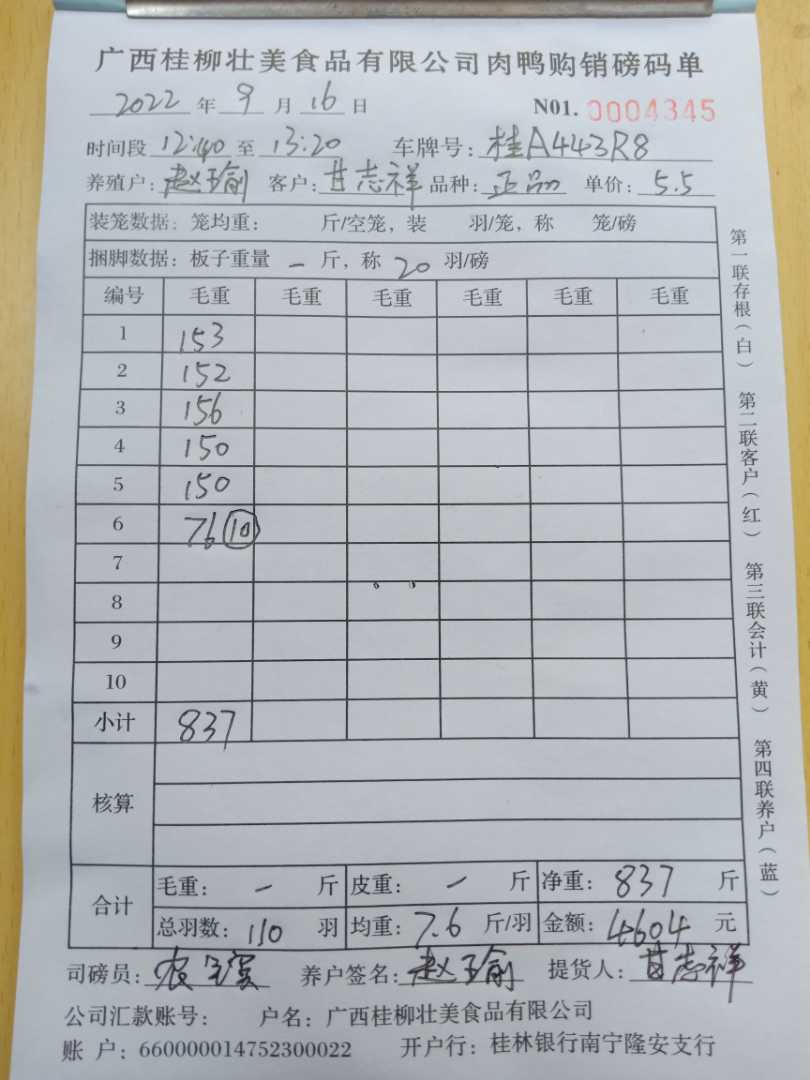 广西桂柳壮美食品有限公司肉鸭购销磅码单
2022 年 9 月 16 日 N01. 0004345
时间段 12:40 至 13:20 车牌号: 桂A443R8
养殖户: 赵瑜 客户: 甘志祥 品种: 正品 单价: 5.5
装笼数据: 笼均重: 斤/空笼, 装 羽/笼, 称 笼/磅
捆脚数据: 板子重量 — 斤, 称 20 羽/磅
编号 毛重 毛重 毛重 毛重 毛重 毛重
1 153
2 152
3 156
4 150
5 150
6 76 10
7
8
9
10
小计 837
核算
合计 毛重: — 斤 皮重: — 斤 净重: 837 斤
总羽数: 110 羽 均重: 7.6 斤/羽 金额: 4604 元
司磅员: 养户签名: 赵瑜 提货人: 甘志祥
公司汇款账号: 户名: 广西桂柳壮美食品有限公司
账 户: 660000014752300022 开户行: 桂林银行南宁隆安支行
第一联存根(白) 第二联客户(红) 第三联会计(黄) 第四联养户(蓝)